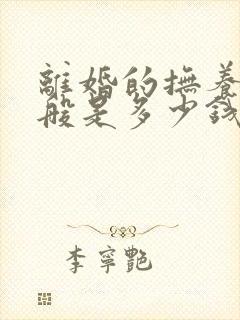 離婚的撫養
般是多少錢
李寧艷